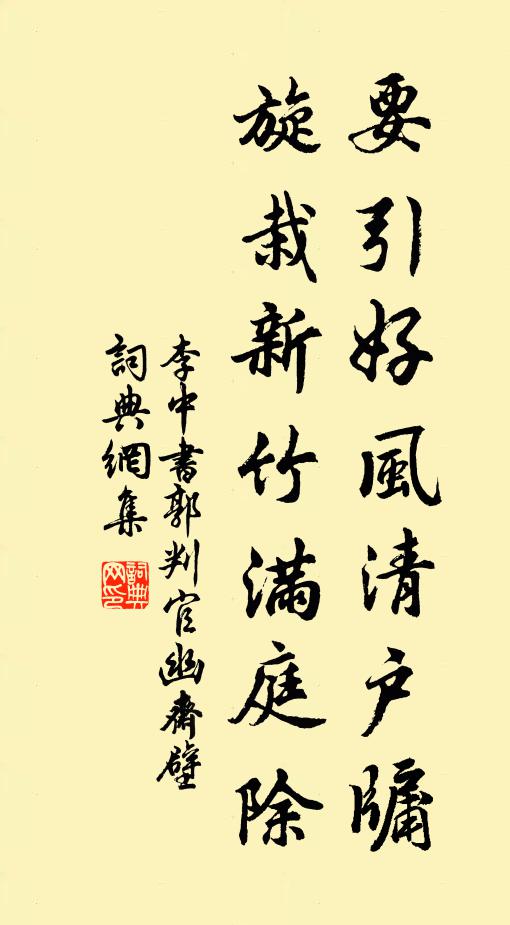 要引好風清戶牖
旋栽新竹滿庭除
李中書郭判官幽齋壁
詞典網集
詞典网印